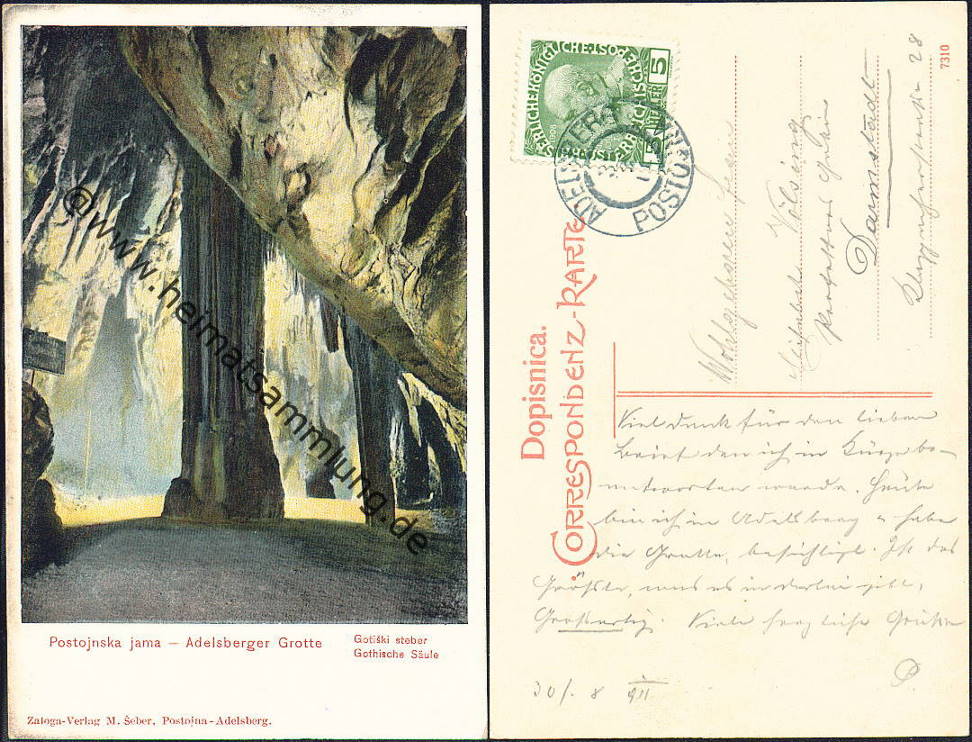 Postojnska jama — Adelsberger Grotte
Gotiški steber
Gothische Säule
Zaloga-Verlag M. Šeber, Postojna-Adelsberg.
@www.heimatsammlung.de
KAISERLICHE KÖNIGLICHE ÖSTERREICHISCHE POST
5 HELLER 5
1908
ADELSBERG
POSTOJNA
Dopisnica.
CORRESPONDENZ-KARTE
7310
Wohlgeboren Herrn
Professor
Darmstadt
28
Viel Dank für den lieben
Brief den ich in Kürze be-
antworten werde. Heute
bin ich in Adelsberg u. habe
die Grotte besichtigt. Ist das
Größte, was es in derlei gibt,
Großartig. Viele herzliche Grüße
P.
30/. 8 911